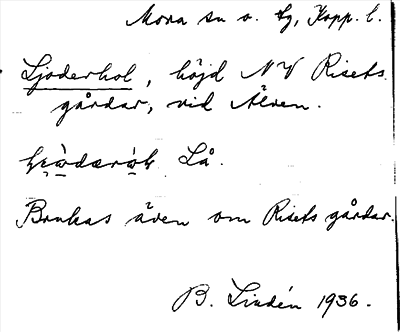 Mora sn o. tg, Kopp. l.
Ljoderhol, höjd NV Risets
gårdar, vid Älven.
Lå.
Brukas även om Risets gårdar.
B. Lindén 1936.